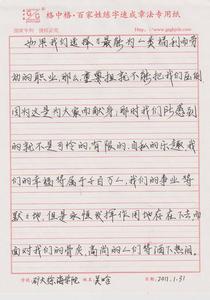 格中格·百家姓练字速成章法专用纸
如果我们选择了最能为人类福利而劳
动的职业,那么,重担就不能把我们压倒,
因为这是为大家而献身,那时我们所感到
的就不是可怜的、有限的、自私的乐趣,我
们的幸福将属于千百万人,我们的事业将
默默地、但是永恒发挥作用地存在下去,而
面对我们的骨灰,高尚的人们将洒下热泪。
学校 姓名 吴晗 日期 2013.1.31